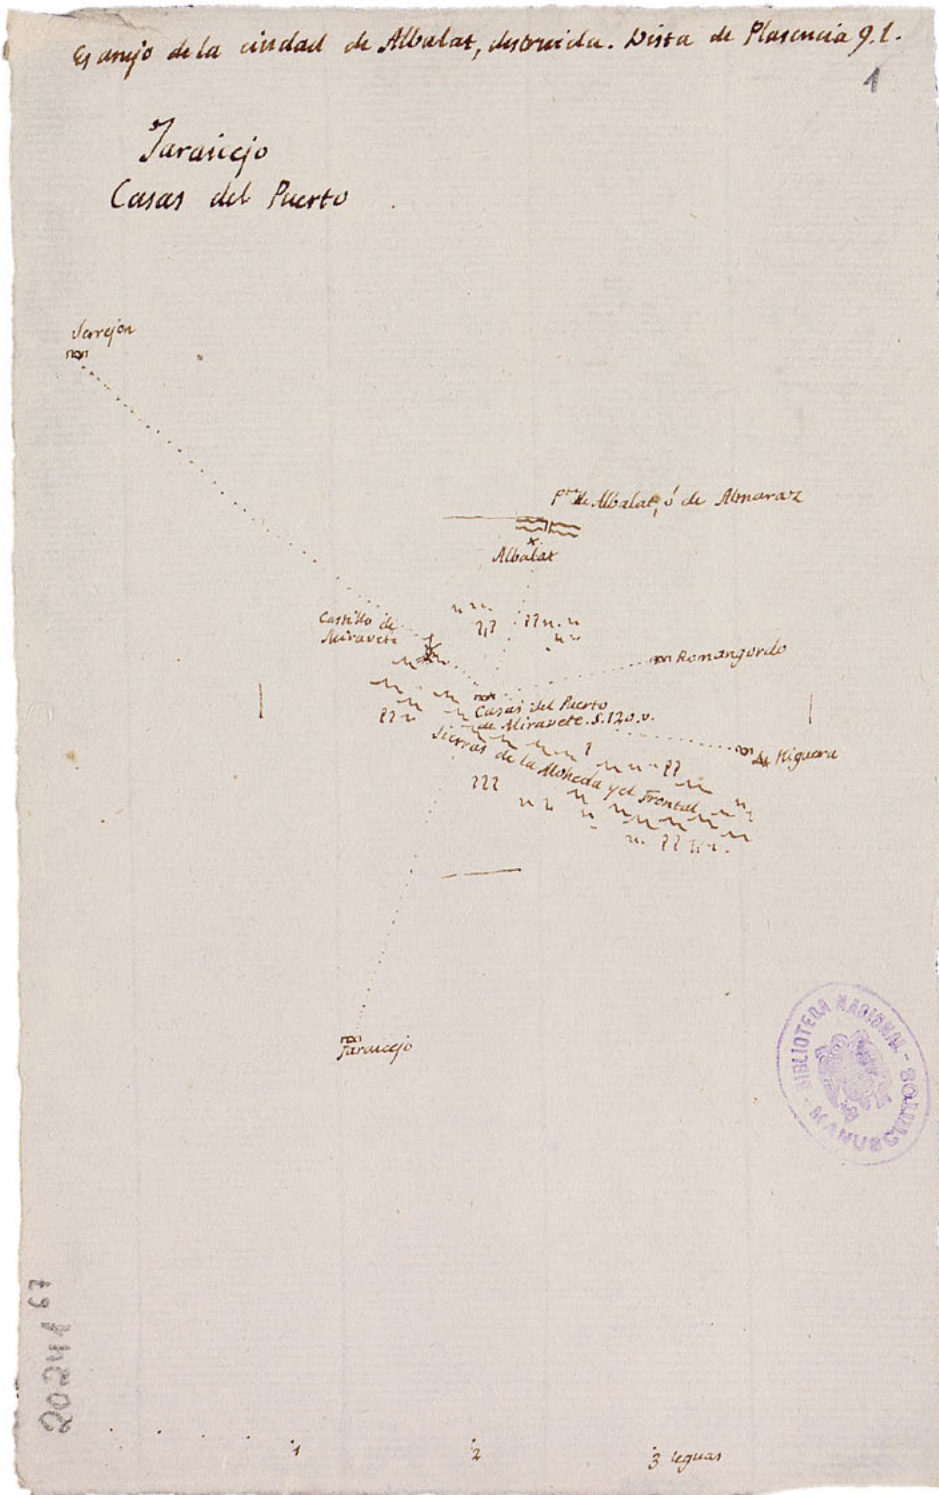 Es anejo de la ciudad de Albalat, destruida. Dista de Plasencia 9. l.
1
Jaraicejo
Casas del Puerto
Serrejon
Pte de Albalat, ó de Almaraz
Albalat
Castillo de
Miravete
Romangordo
Casas del Puerto
de Miravete. S. 120. v.
La Higuera
Sierras de la Moheda y el Frontal
Jaraicejo
BIBLIOTECA NACIONAL - MANUSCRITOS -
20241 67
1 2 3 leguas